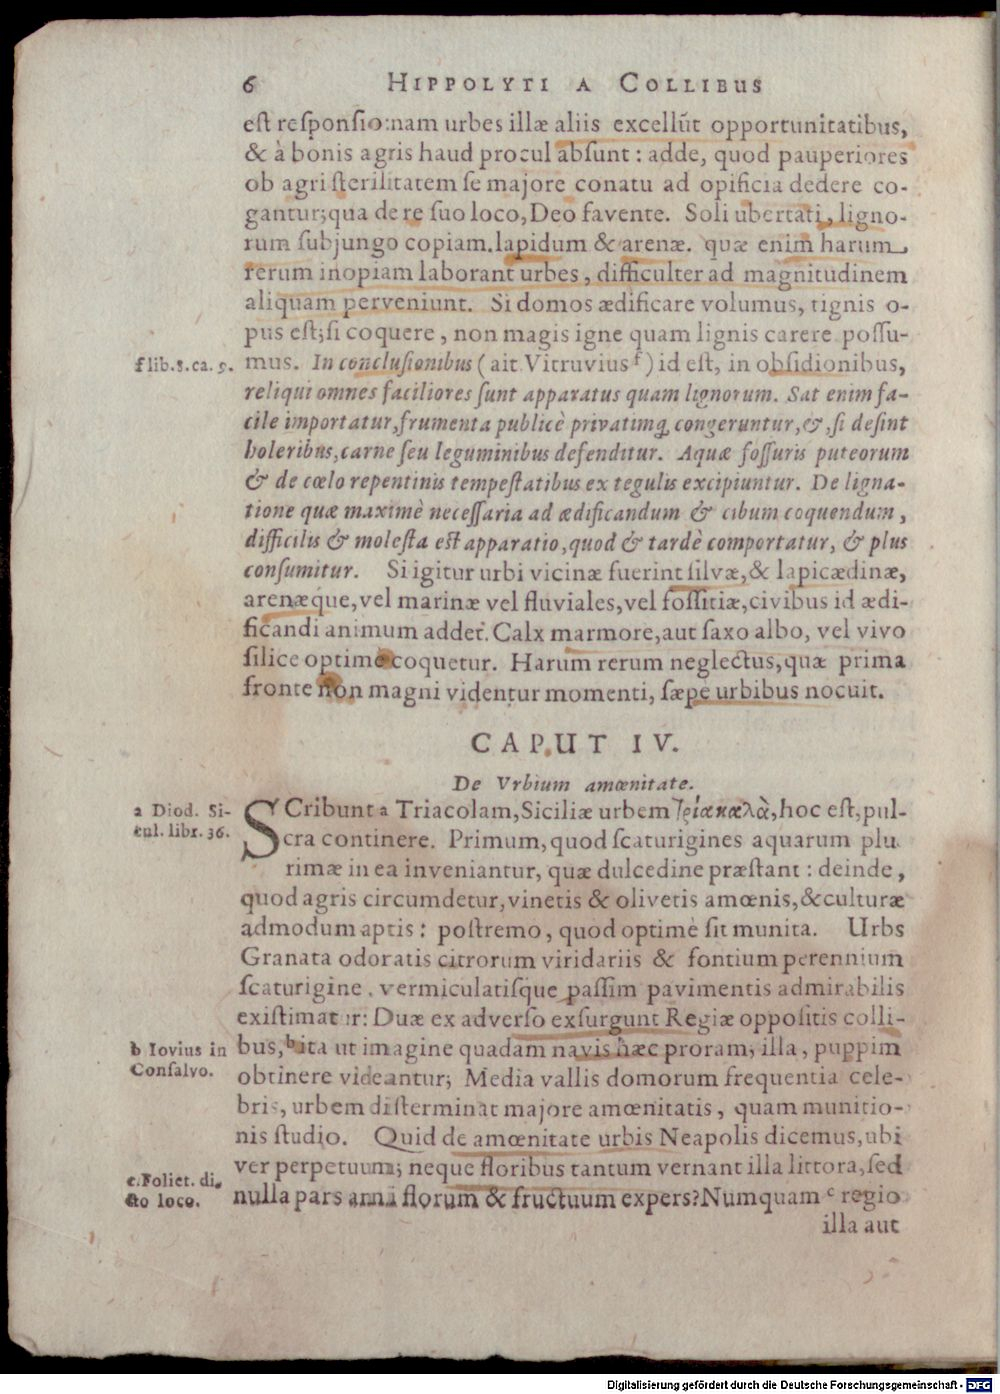 6 HIPPOLYTI A COLLIBUS
est responsio:nam urbes illæ aliis excellũt opportunitatibus,
& à bonis agris haud procul absunt : adde, quod pauperiores
ob agri sterilitatem se majore conatu ad opificia dedere co-
gantur;qua de re suo loco, Deo favente. Soli ubertati, ligno-
rum subjungo copiam.lapidum & arenæ. quæ enim harum
rerum inopiam laborant urbes, difficulter ad magnitudinem
aliquam perveniunt. Si domos ædificare volumus, tignis o-
pus est;si coquere, non magis igne quam lignis carere possu-
f lib.5.ca. 9. mus. In conclusionibus ( ait Vitruvius f ) id est, in obsidionibus,
reliqui omnes faciliores sunt apparatus quam lignorum. Sat enim fa-
cile importatur,frumenta publicè privatimq; congeruntur,&, si desint
holeribus,carne seu leguminibus defenditur. Aquæ fossuris puteorum
& de cœlo repentinis tempestatibus ex tegulis excipiuntur. De ligna-
tione quæ maximè necessaria ad ædificandum & cibum coquendum,
difficilis & molesta est apparatio,quod & tardè comportatur, & plus
consumitur. Si igitur urbi vicinæ fuerint silvæ,& lapicædinæ,
arenæque,vel marinæ vel fluviales,vel fossitiæ,civibus id ædi-
ficandi animum addet. Calx marmore,aut saxo albo, vel vivo
silice optime coquetur. Harum rerum neglectus,quæ prima
fronte non magni videntur momenti, sæpe urbibus nocuit.
CAPUT IV.
De Vrbium amœnitate.
a Diod. Si-
cul. libr. 36.
SCribunt a Triacolam,Siciliæ urbem τρία καλὰ,hoc est,pul-
cra continere. Primum,quod scaturigines aquarum plu
rimæ in ea inveniantur, quæ dulcedine præstant : deinde,
quod agris circumdetur,vinetis & olivetis amœnis,&culturæ
admodum aptis : postremo, quod optimè sit munita. Urbs
Granata odoratis citrorum viridariis & fontium perennium
scaturigine, vermiculatisque passim pavimentis admirabilis
existimatur: Duæ ex adverso exsurgunt Regiæ oppositis colli-
b Iovius in
Consalvo.
bus,b ita ut imagine quadam navis hæc proram, illa, puppim
obtinere videantur; Media vallis domorum frequentia cele-
bris, urbem disterminat majore amœnitatis, quam munitio-
nis studio. Quid de amœnitate urbis Neapolis dicemus,ubi
ver perpetuum; neque floribus tantum vernant illa littora,sed
c.Foliet. di-
cto loco.
nulla pars anni florum & fructuum expers?Numquam c regio
illa aut
Digitalisierung gefördert durch die Deutsche Forschungsgemeinschaft - DFG